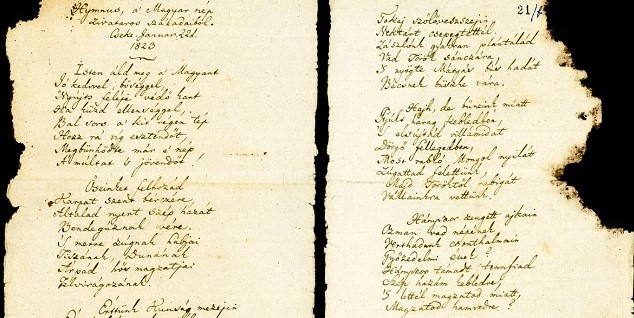 Hymnus, a' Magyar nép
zivataros századaiból.
Cseke Januar. 22d.
1823
Isten áldd meg a' Magyart
Jó kedvvel, bőséggel,
Nyújts feléje védő kart
Ha küzd ellenséggel;
Bal sors a' kit régen tép
Hozz rá víg esztendőt,
Megbűnhődte már e' nép
A' múltat 's jövendőt!
Őseinket felhozád
Kárpát szent bérczére,
Általad nyert szép hazát
Bendegúznak vére.
'S merre zúgnak habjai
Tiszának, Dunának,
Árpád' hős magzatjai
Felvirágozának.
Értünk Kunság mezején
21/
Tokaj szőlővesszejein
Nektárt csepegtettél.
Zászlónk gyakran plántálád
Vad Török sánczára,
'S nyögte Mátyás bús hadát
Bécsnek büszke vára.
Hajh, de bűneink miatt
Gyúlt harag kebledben,
'S elsújtád villámidat
Dörgő fellegedben,
Most rabló Mongol nyilát
Zúgattad felettünk,
Majd Töröktől rabigát
Vállainkra vettünk.
Hányszor zengett ajkain
Ozman vad népének
Vert hadunk csonthalmain
Győzedelmi ének?
Hányszor támadt tennfiad
Szép hazám kebledre,
'S lettél magzatod miatt,
Magzatod hamvedre?